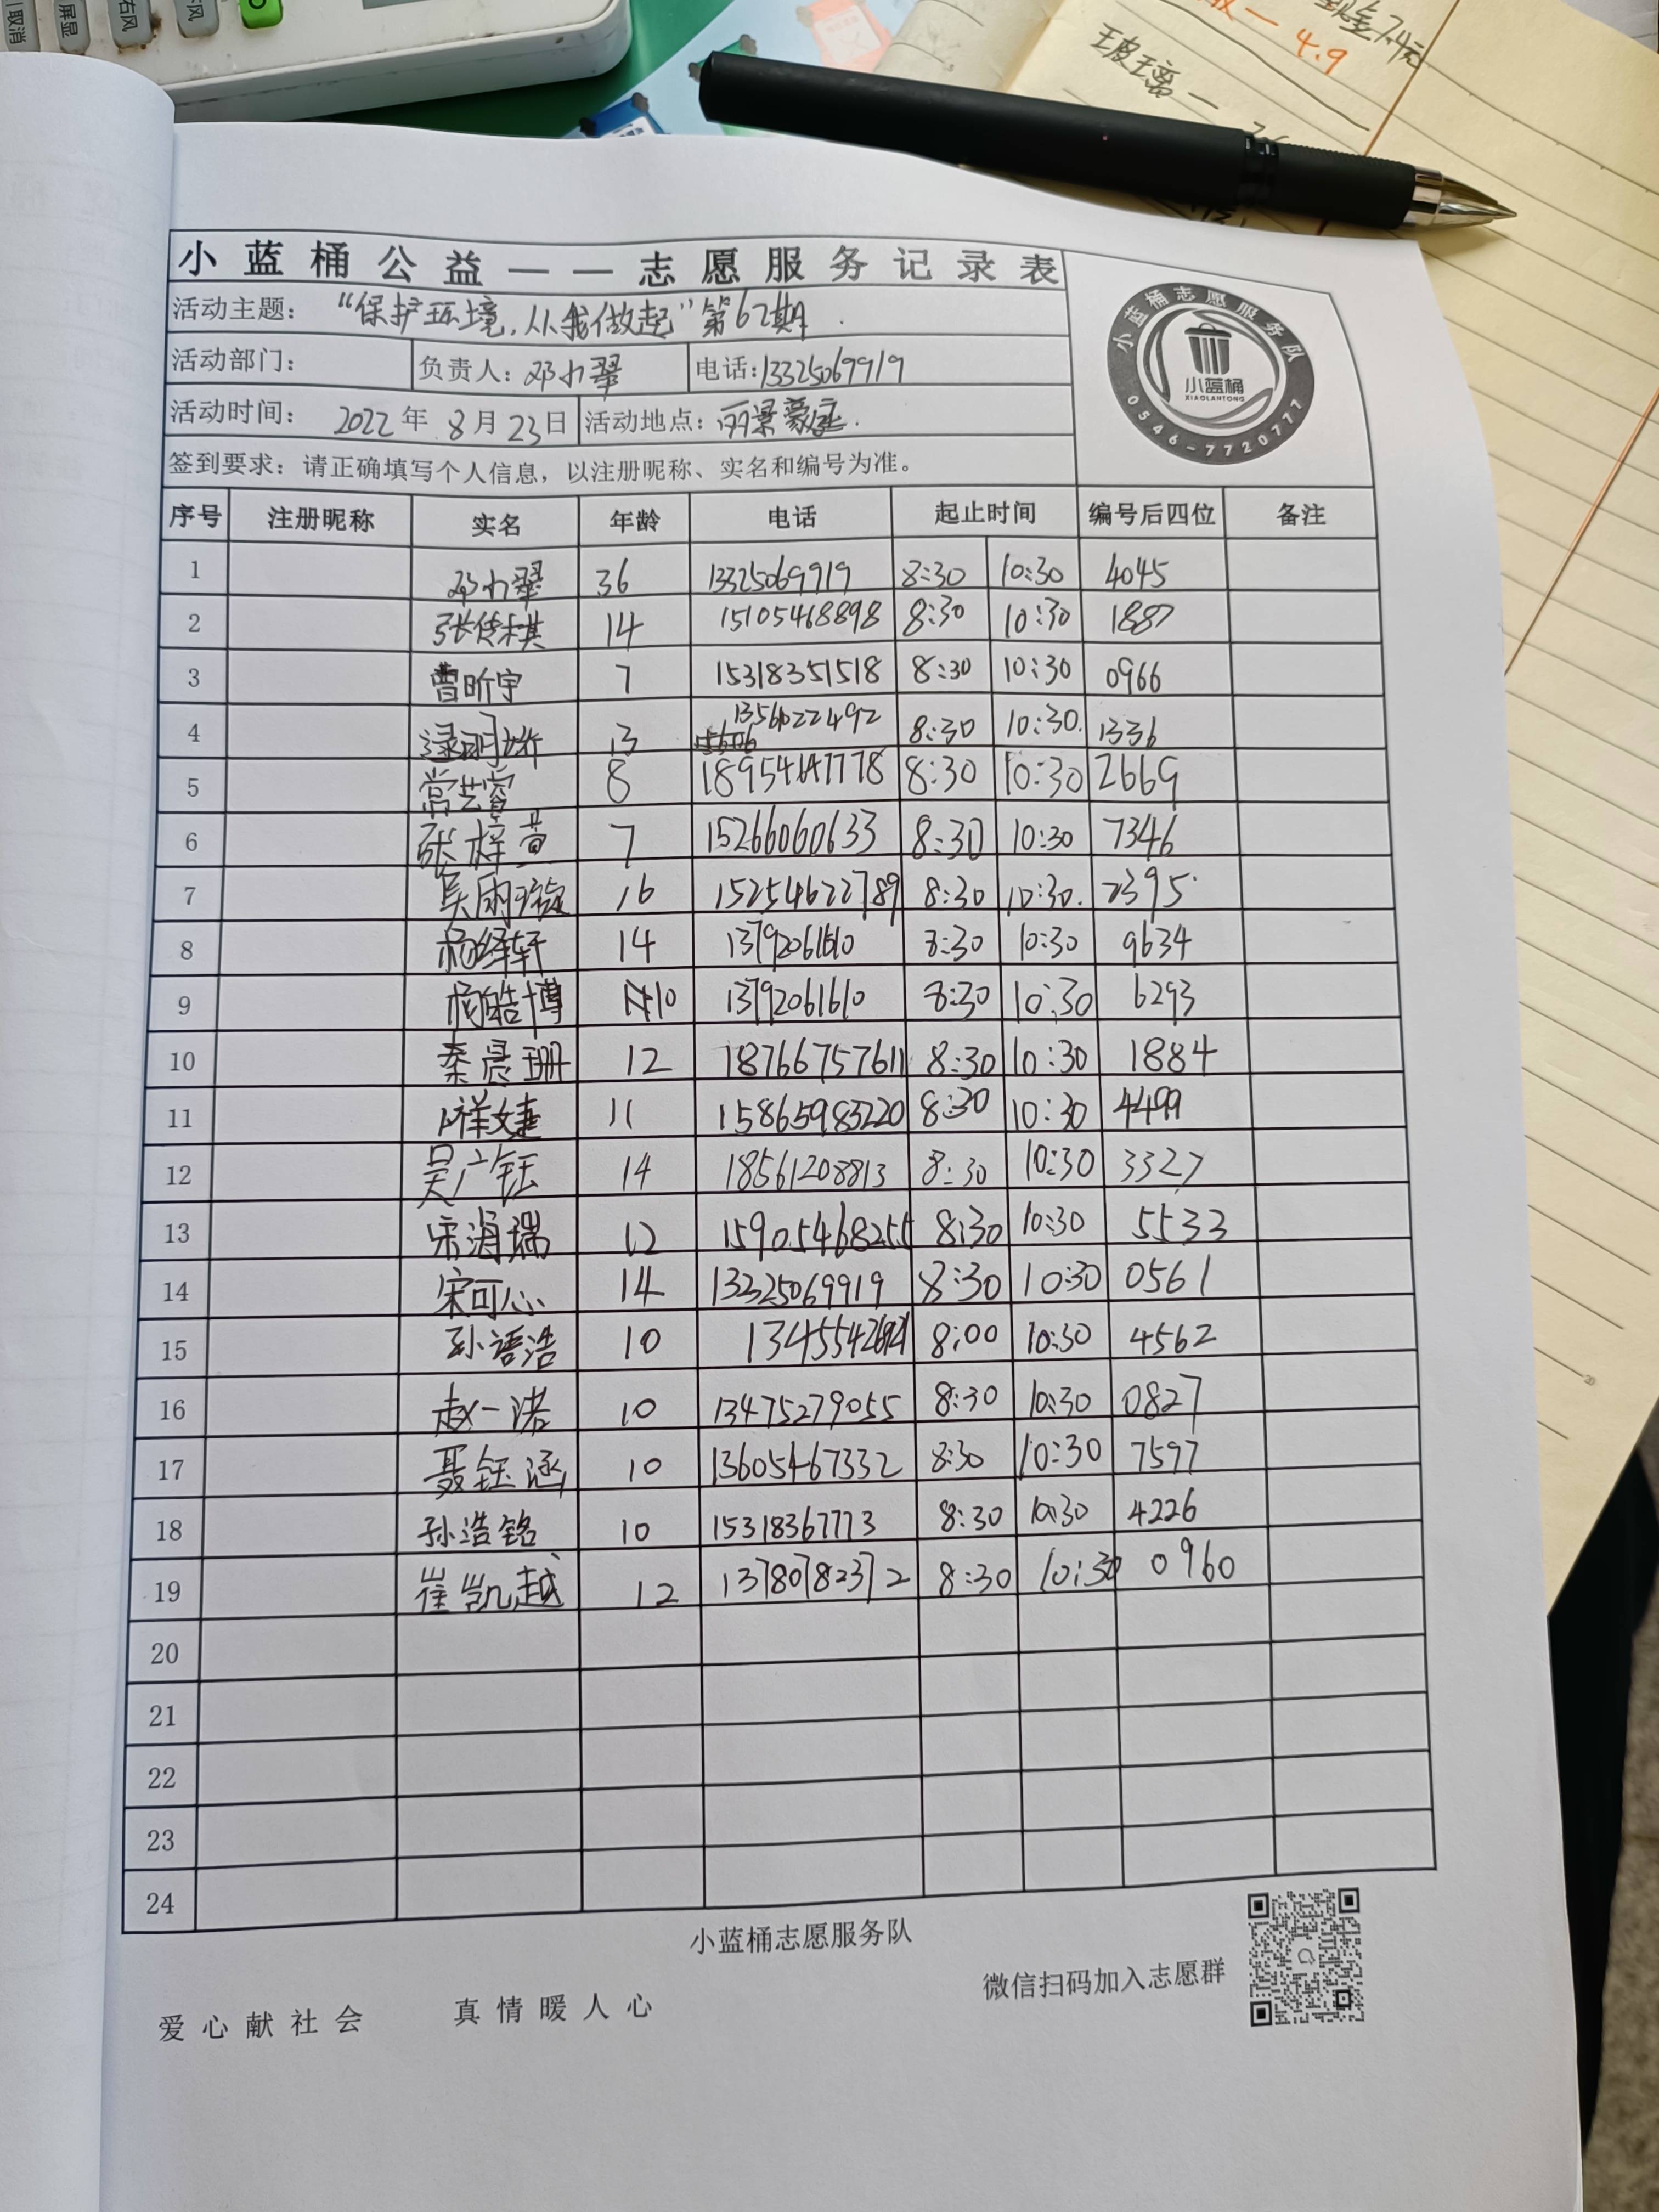 取消
屏显
右风
4.9
玻璃一
小蓝桶公益——志愿服务记录表
活动主题： “保护环境，从我做起”第62期
活动部门： 负责人：邓小翠 电话:13325069919
活动时间： 2022年 8月23日 活动地点：丽景豪庭
签到要求：请正确填写个人信息，以注册昵称、实名和编号为准。
小蓝桶志愿服务队
小蓝桶
XIAOLANTONG
0546-7720777
序号 注册昵称 实名 年龄 电话 起止时间 编号后四位 备注
1 邓小翠 36 13325069919 8:30 10:30 4045
2 张倩棋 14 15105468898 8:30 10:30 1887
3 曹昕宇 7 15318351518 8:30 10:30 0966
4 13 8:30 10:30. 1336
5 常艺窨 8 18954647778 8:30 10:30 2669
6 张梓萱 7 15266060633 8:30 10:30 7346
7 吴雨璇 16 15254622789 8:30 10:30. 2395
8 杨绎轩 14 13792061610 8:30 10:30 9634
9 杨皓博 10 13792061610 8:30 10:30 6293
10 秦晨珊 12 18766757611 8:30 10:30 1884
11 11 15865983220 8:30 10:30 4499
12 吴广钰 14 18561208813 8:30 10:30 3327
13 宋海瑞 12 15905468255 8:30 10:30 5533
14 宋可心 14 13325069919 8:30 10:30 0561
15 孙语浩 10 8:00 10:30 4562
16 赵一诺 10 13475279055 8:30 10:30 0827
17 聂钰涵 10 13605467332 8:30 10:30 7597
18 孙浩铭 10 15318367773 8:30 10:30 4226
19 崔凯越 12 13780782372 8:30 10:30 0960
20
21
22
23
24
小蓝桶志愿服务队
微信扫码加入志愿群
爱心献社会 真情暖人心